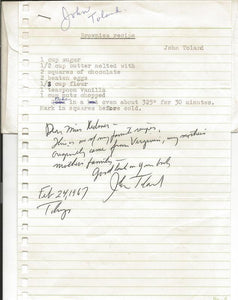 John Toland
Brownies recipe
John Toland
1 cup sugar
1/2 cup butter melted with
2 squares of chocolate
2 beaten eggs
1/2 cup flour
1 teaspoon vanilla
1 cup nuts chopped
in a oven about 325° for 30 minutes.
Mark in squares before cold.
Dear Miss
This is one of my favorite recipes.
Originally came from Virginia, my mother's
mother's family.
Good luck on your book
John Toland
Feb 24, 1967
Tokyo